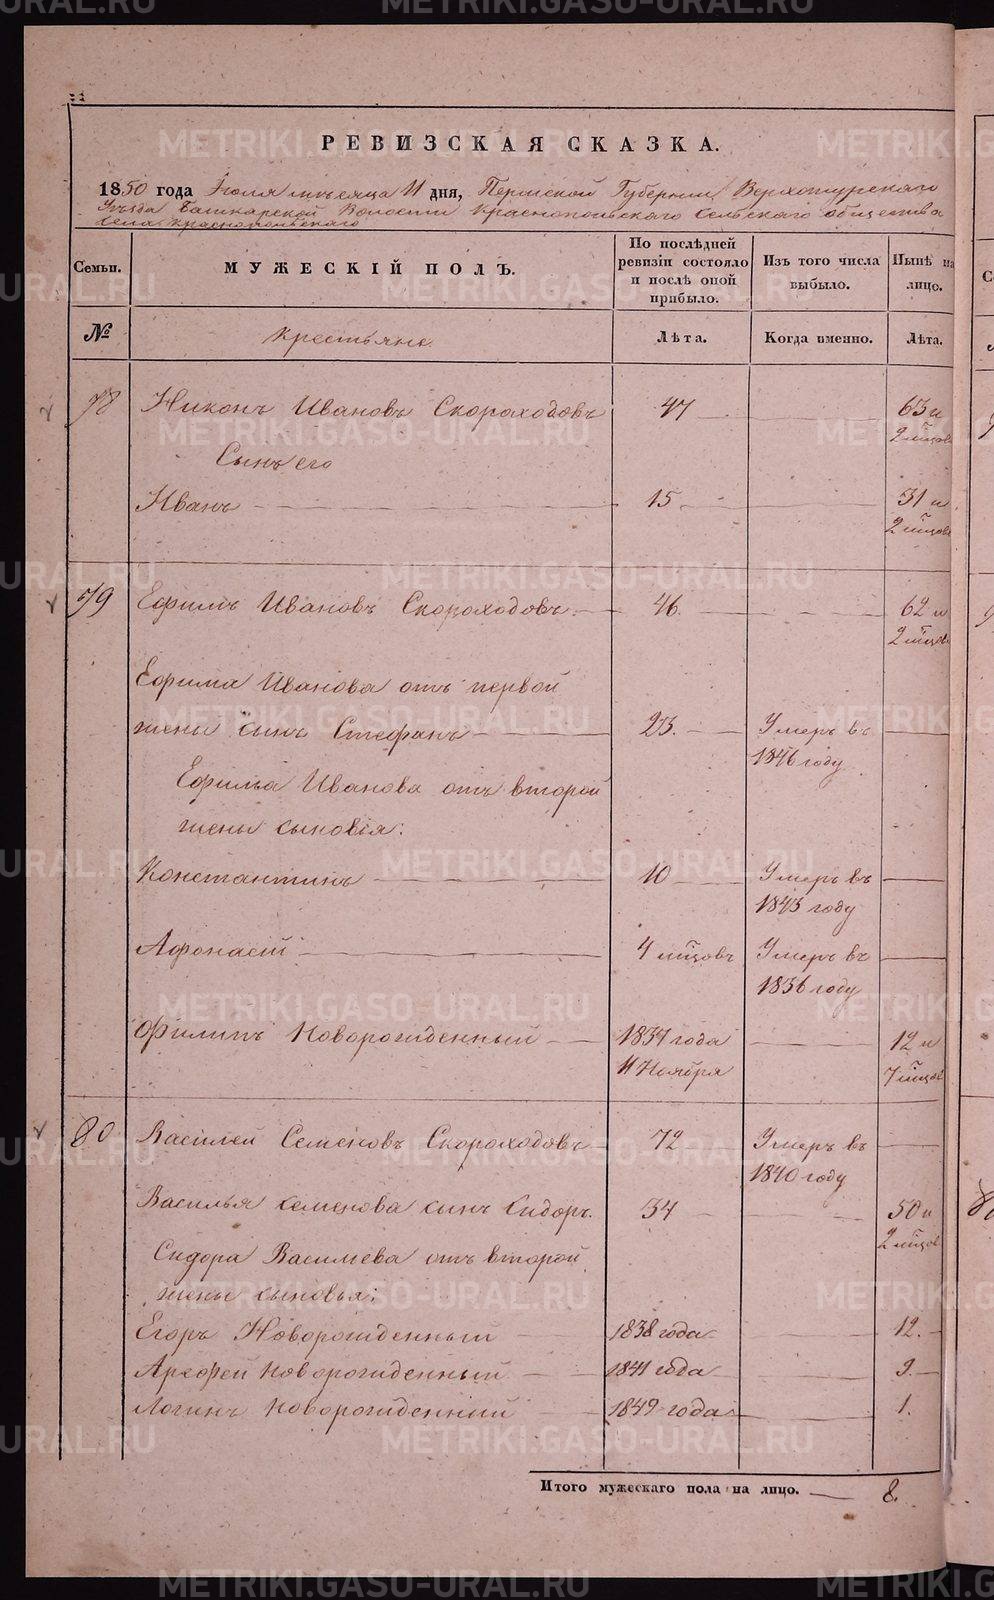 РЕВИЗСКАЯ СКАЗКА.
1850 года Іюля мѣсяца 11 дня, Пермской Губерніи Верхотурскаго
Уѣзда Башкарской Волости Краснопольскаго Сельскаго общества
села Краснопольскаго
Семьи. МУЖЕСКІЙ ПОЛЪ. По послѣдней ревизіи состояло и послѣ оной прибыло. Изъ того числа выбыло. Нынѣ на лицо.
№ Крестьяне. Лѣта. Когда именно. Лѣта.
78 Никонъ Ивановъ Скороходовъ 47 63 и
2 мѣсцовъ
Сынъ его
Иванъ 15 31 и
2 мѣсцовъ
79 Ефимъ Ивановъ Скороходовъ 46. 62 и
2 мѣсцовъ
Ефима Иванова отъ первой
жены сынъ Стефанъ 23. Умеръ въ
1846 году
Ефима Иванова отъ второй
жены сыновія:
Константинъ 10 Умеръ въ
1843 году
Афонасій 4 мѣсцовъ Умеръ въ
1836 году
Филипъ Новорожденный 1837 года 12 и
11 Ноября 7 мѣсцовъ
80 Василей Семеновъ Скороходовъ 72 Умеръ въ
1840 году
Василья Семенова сынъ Сидоръ. 34 50 и
2 мѣсцовъ
Сидора Васильева отъ второй
жены сыновья:
Егоръ Новорожденный 1838 года 12.
Арефей Новорожденный 1841 года 9.
Логинъ Новорожденный 1849 года 1.
Итого мужескаго пола на лицо. 8.
METRIKI.GASO-URAL.RU